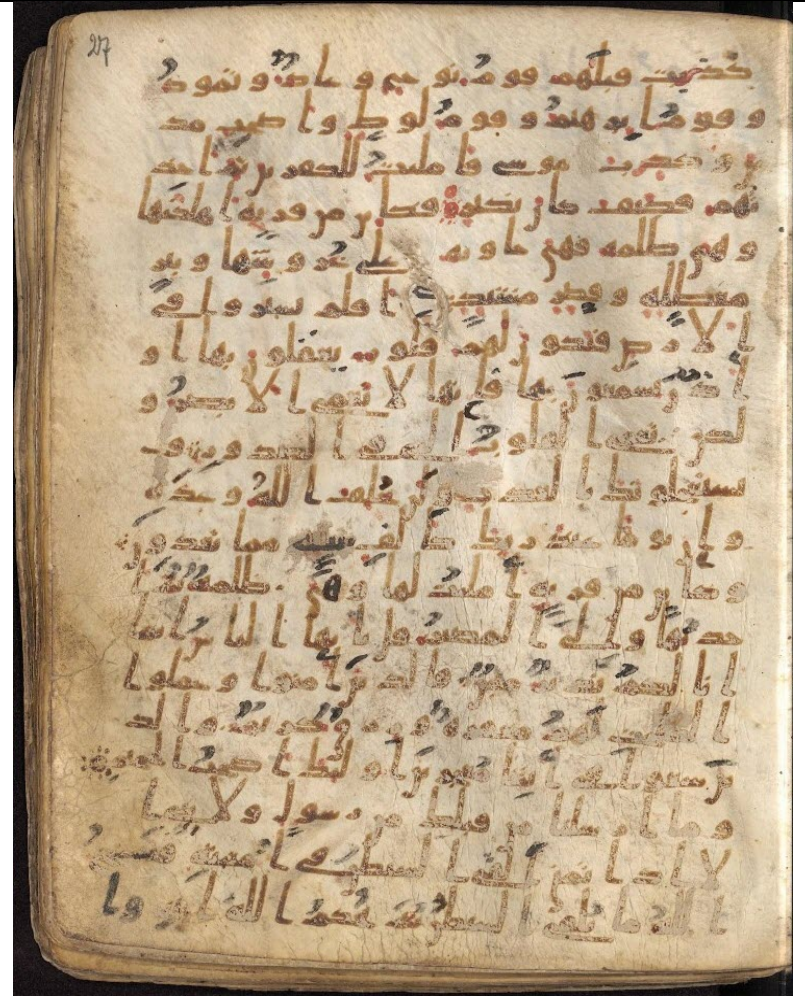 كذبت قبلهم قوم نوح و عاد و ثمود
و قوم ابرهيم و قوم لوط و اصحب مد
ين و كذب موسى فامليت للكفرين ثم اخذ
تهم فكيف كان نكير فكاين من قرية اهلكتها
و هي ظلمة فهي خاوية على عروشها و بير
معطلة و قصر مشيد افلم يسيروا في
الارض فتكون لهم قلوب يعقلون بها او
اذان يسمعون بها فانها لا تعمى الابصر و
لكن تعمى القلوب التي في الصدور و
يستعجلونك بالعذاب و لن يخلف الله وعده
و ان يوما عند ربك كالف سنة مما تعدون
و كاين من قرية امليت لها و هي ظلمة ثم ا
خذتها و الي المصير قل يايها الناس انما
انا لكم نذير مبين فالذين امنوا و عملوا
الصلحت لهم مغفرة و رزق كريم و الذ
ين سعوا في ايتنا معجزين اولئك اصحب الجحيم
و ما ارسلنا من قبلك من رسول و لا نبي ا
لا اذا تمنى القى الشيطن في امنيته فينسخ
الله ما يلقي الشيطن ثم يحكم الله ايته و ا